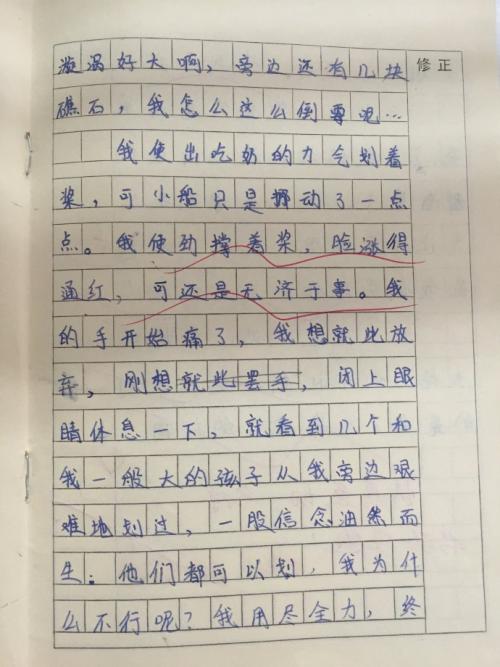 修正
漩涡好大啊，旁边还有几块
礁石，我怎么这么倒霉呢…
我使出吃奶的力气划着
桨，可小船只是挪动了一点
点。我使劲撑着桨，脸涨得
通红，可还是无济于事。我
的手开始痛了，我想就此放
弃，刚想就此罢手，闭上眼
睛休息一下，就看到几个和
我一般大的孩子从我旁边艰
难地划过，一股信念油然而
生：他们都可以划，我为什
么不行呢？我用尽全力，终